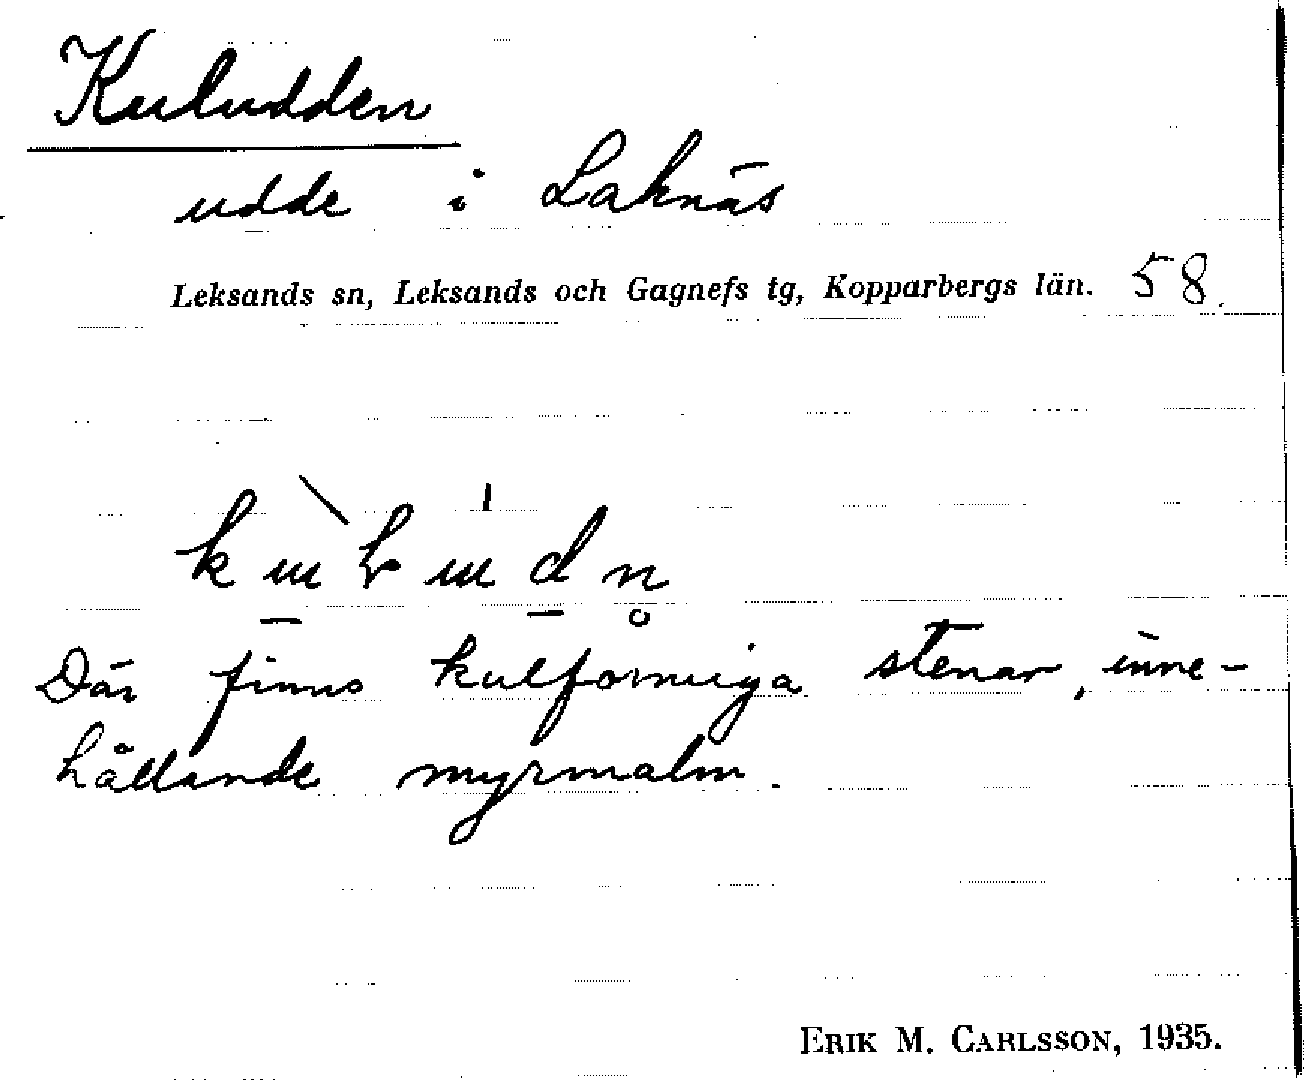 Kuludden
udde i Laknäs
Leksands sn, Leksands och Gagnefs tg, Kopparbergs län. 58.
Där finns kulformiga stenar, inne-
hållande myrmalm.
ERIK M. CARLSSON, 1935.